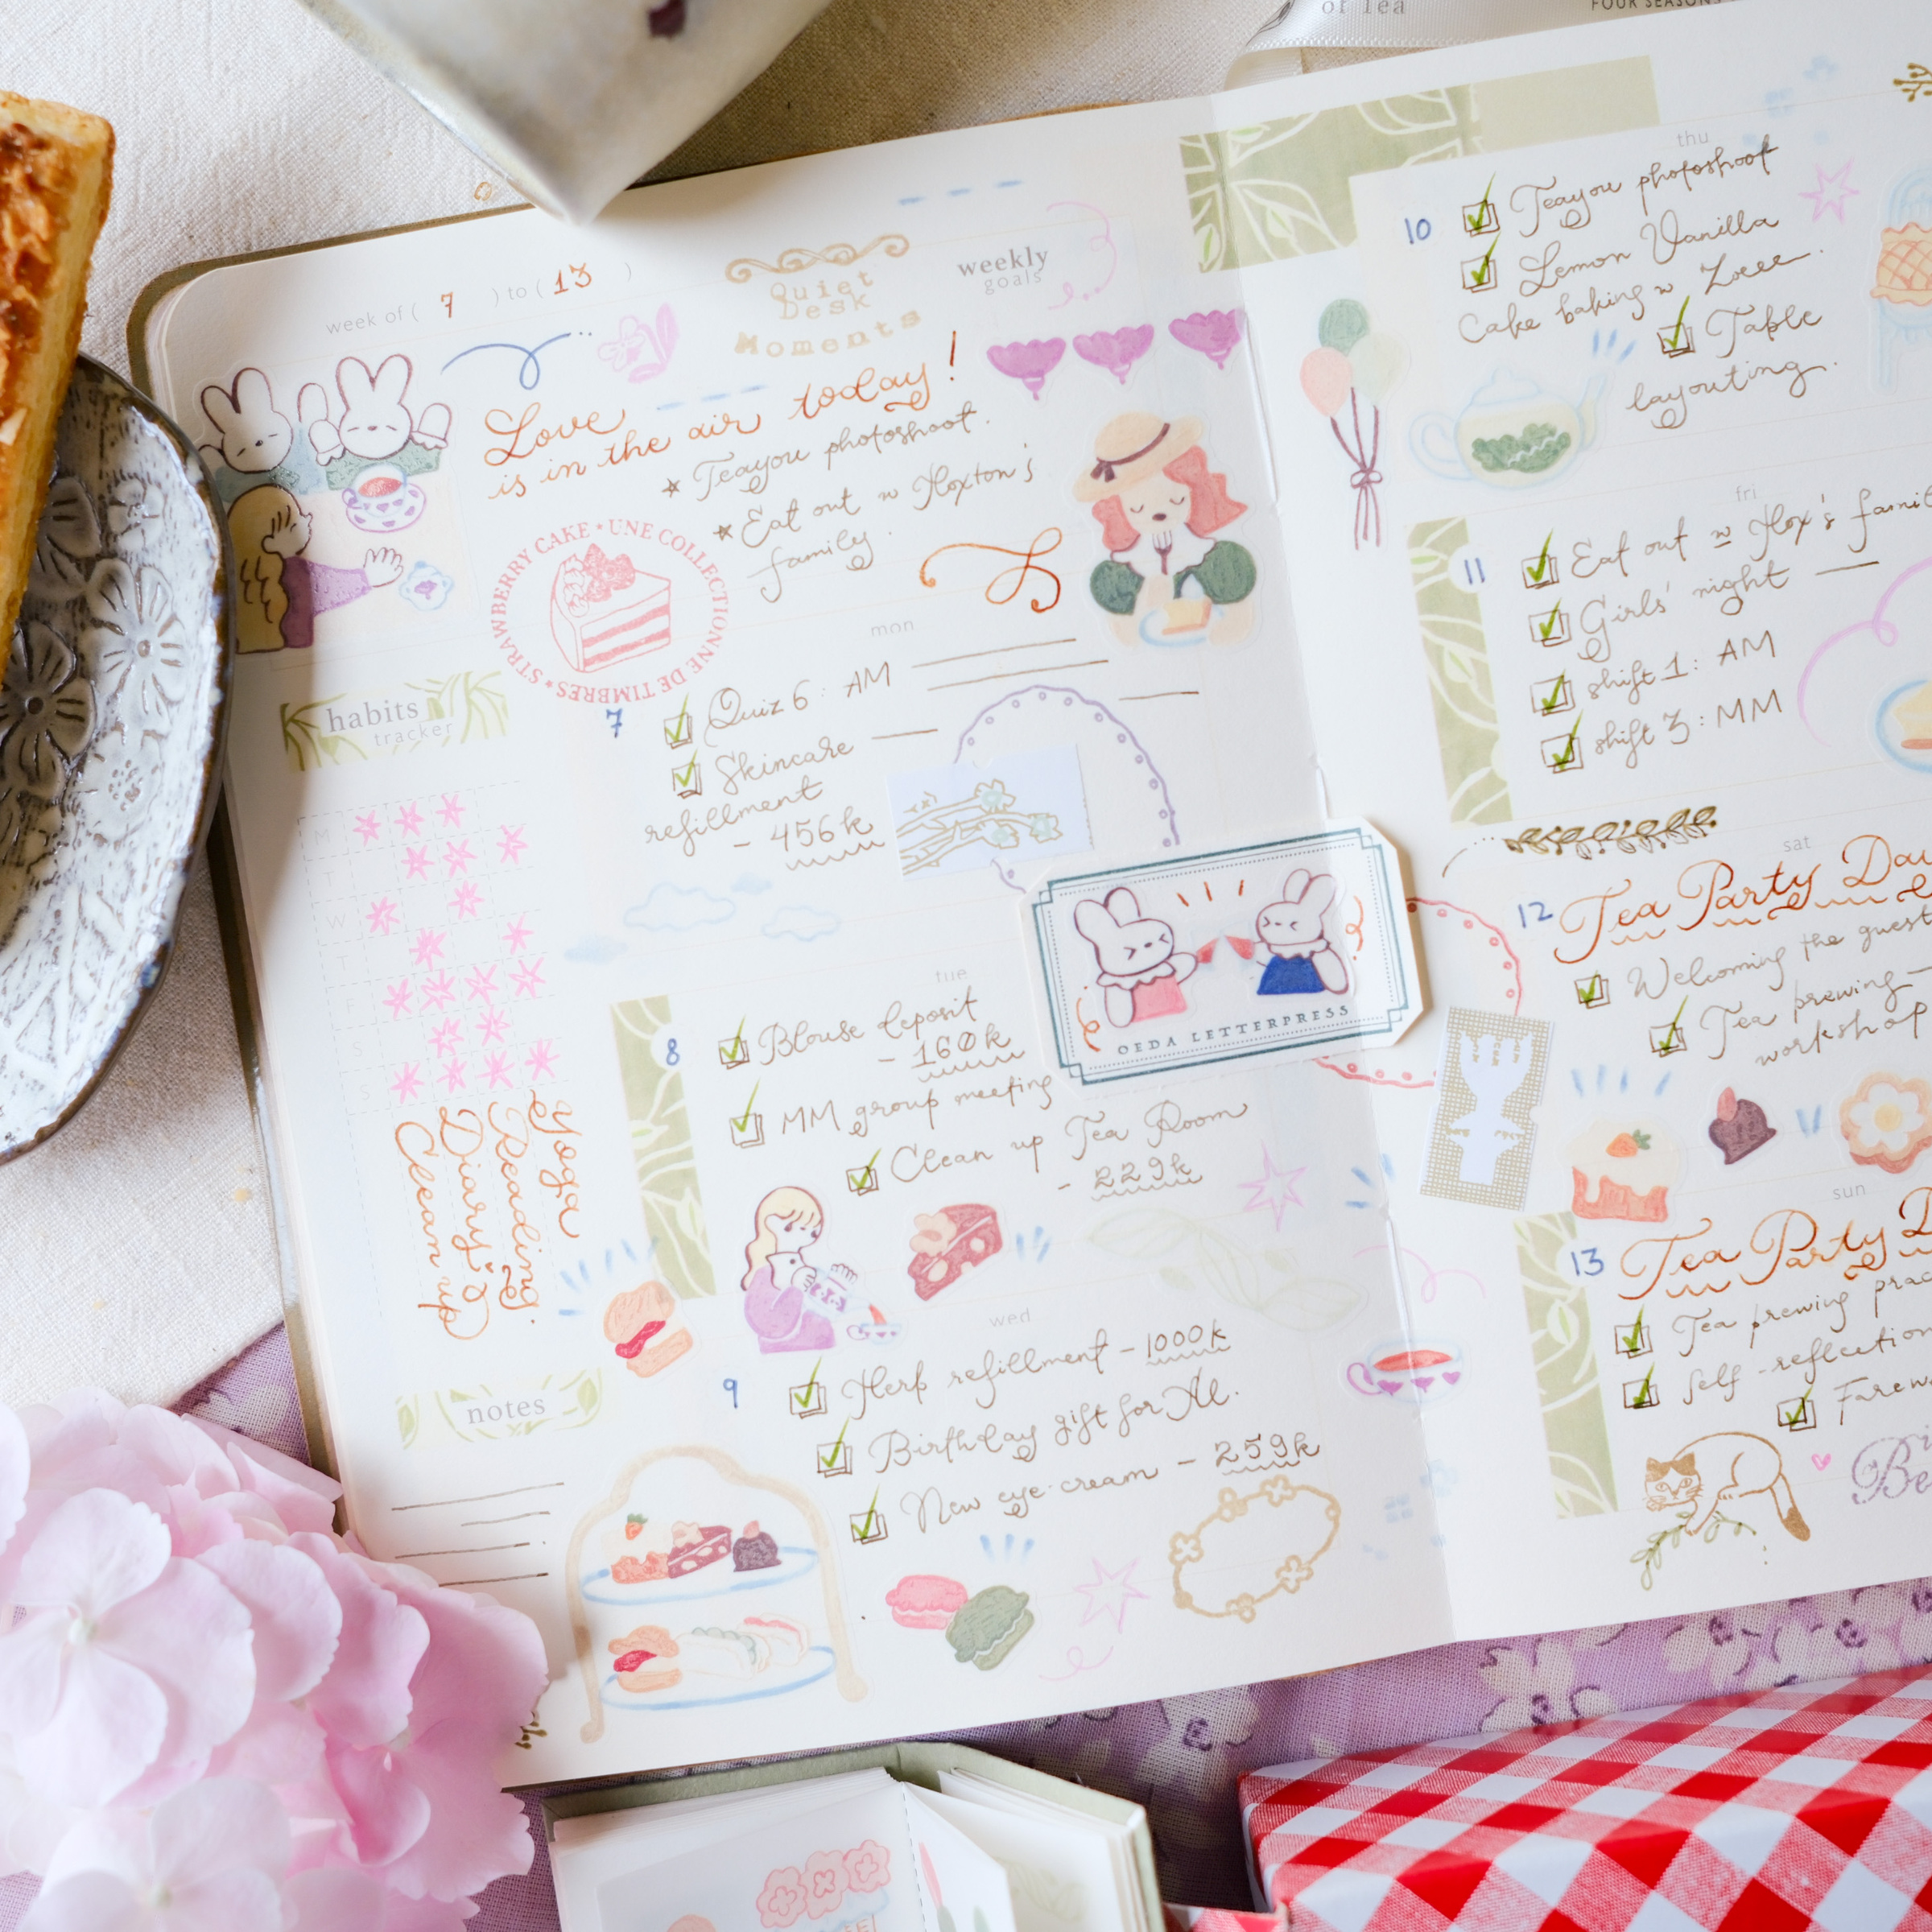 of Tea
FOUR SEASONS
week of ( 7 ) to ( 13 )
Quiet
Desk
Moments
weekly
goals
Love
is in the air today!
★ Teayou photoshoot.
★ Eat out w Hoxton's
family.
STRAWBERRY CAKE • UNE COLLECTIONNE DE TIMBRES •
habits
tracker
M
T
W
T
F
S
S
Yoga
Reading
Diary
Clean up
notes
mon
7
Quiz 6 : AM
Skincare
refillment
- 456k
tue
8
Blouse deposit
- 160k
MM group meeting
Clean up Tea Room
- 229k
wed
9
Herb refillment - 1000k
Birthday gift for Al.
New eye cream - 259k
OEDA LETTERPRESS
thu
10
Teayou photoshoot
Lemon Vanilla
Cake baking w
Table
layouting.
fri
11
Eat out w Hox's
Girls' night
shift 1: AM
shift 3: MM
sat
12
Tea Party
Welcoming the
Tea prewing
workshop
sun
13
Tea Party
Tea prewing
Self-reflection